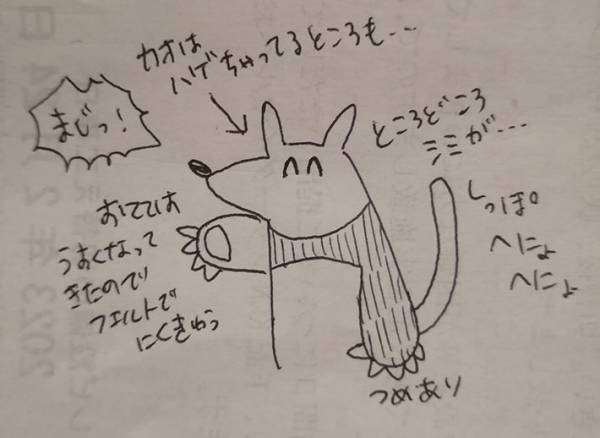 カオは
ハゲちゃってるところも…
まじっ!
ところどころ
シミが…
おてては
うまくなって
きたので
フェルトで
にくきゅう
しっぽ
へにょ
へにょ
つめあり
2023年2月24日